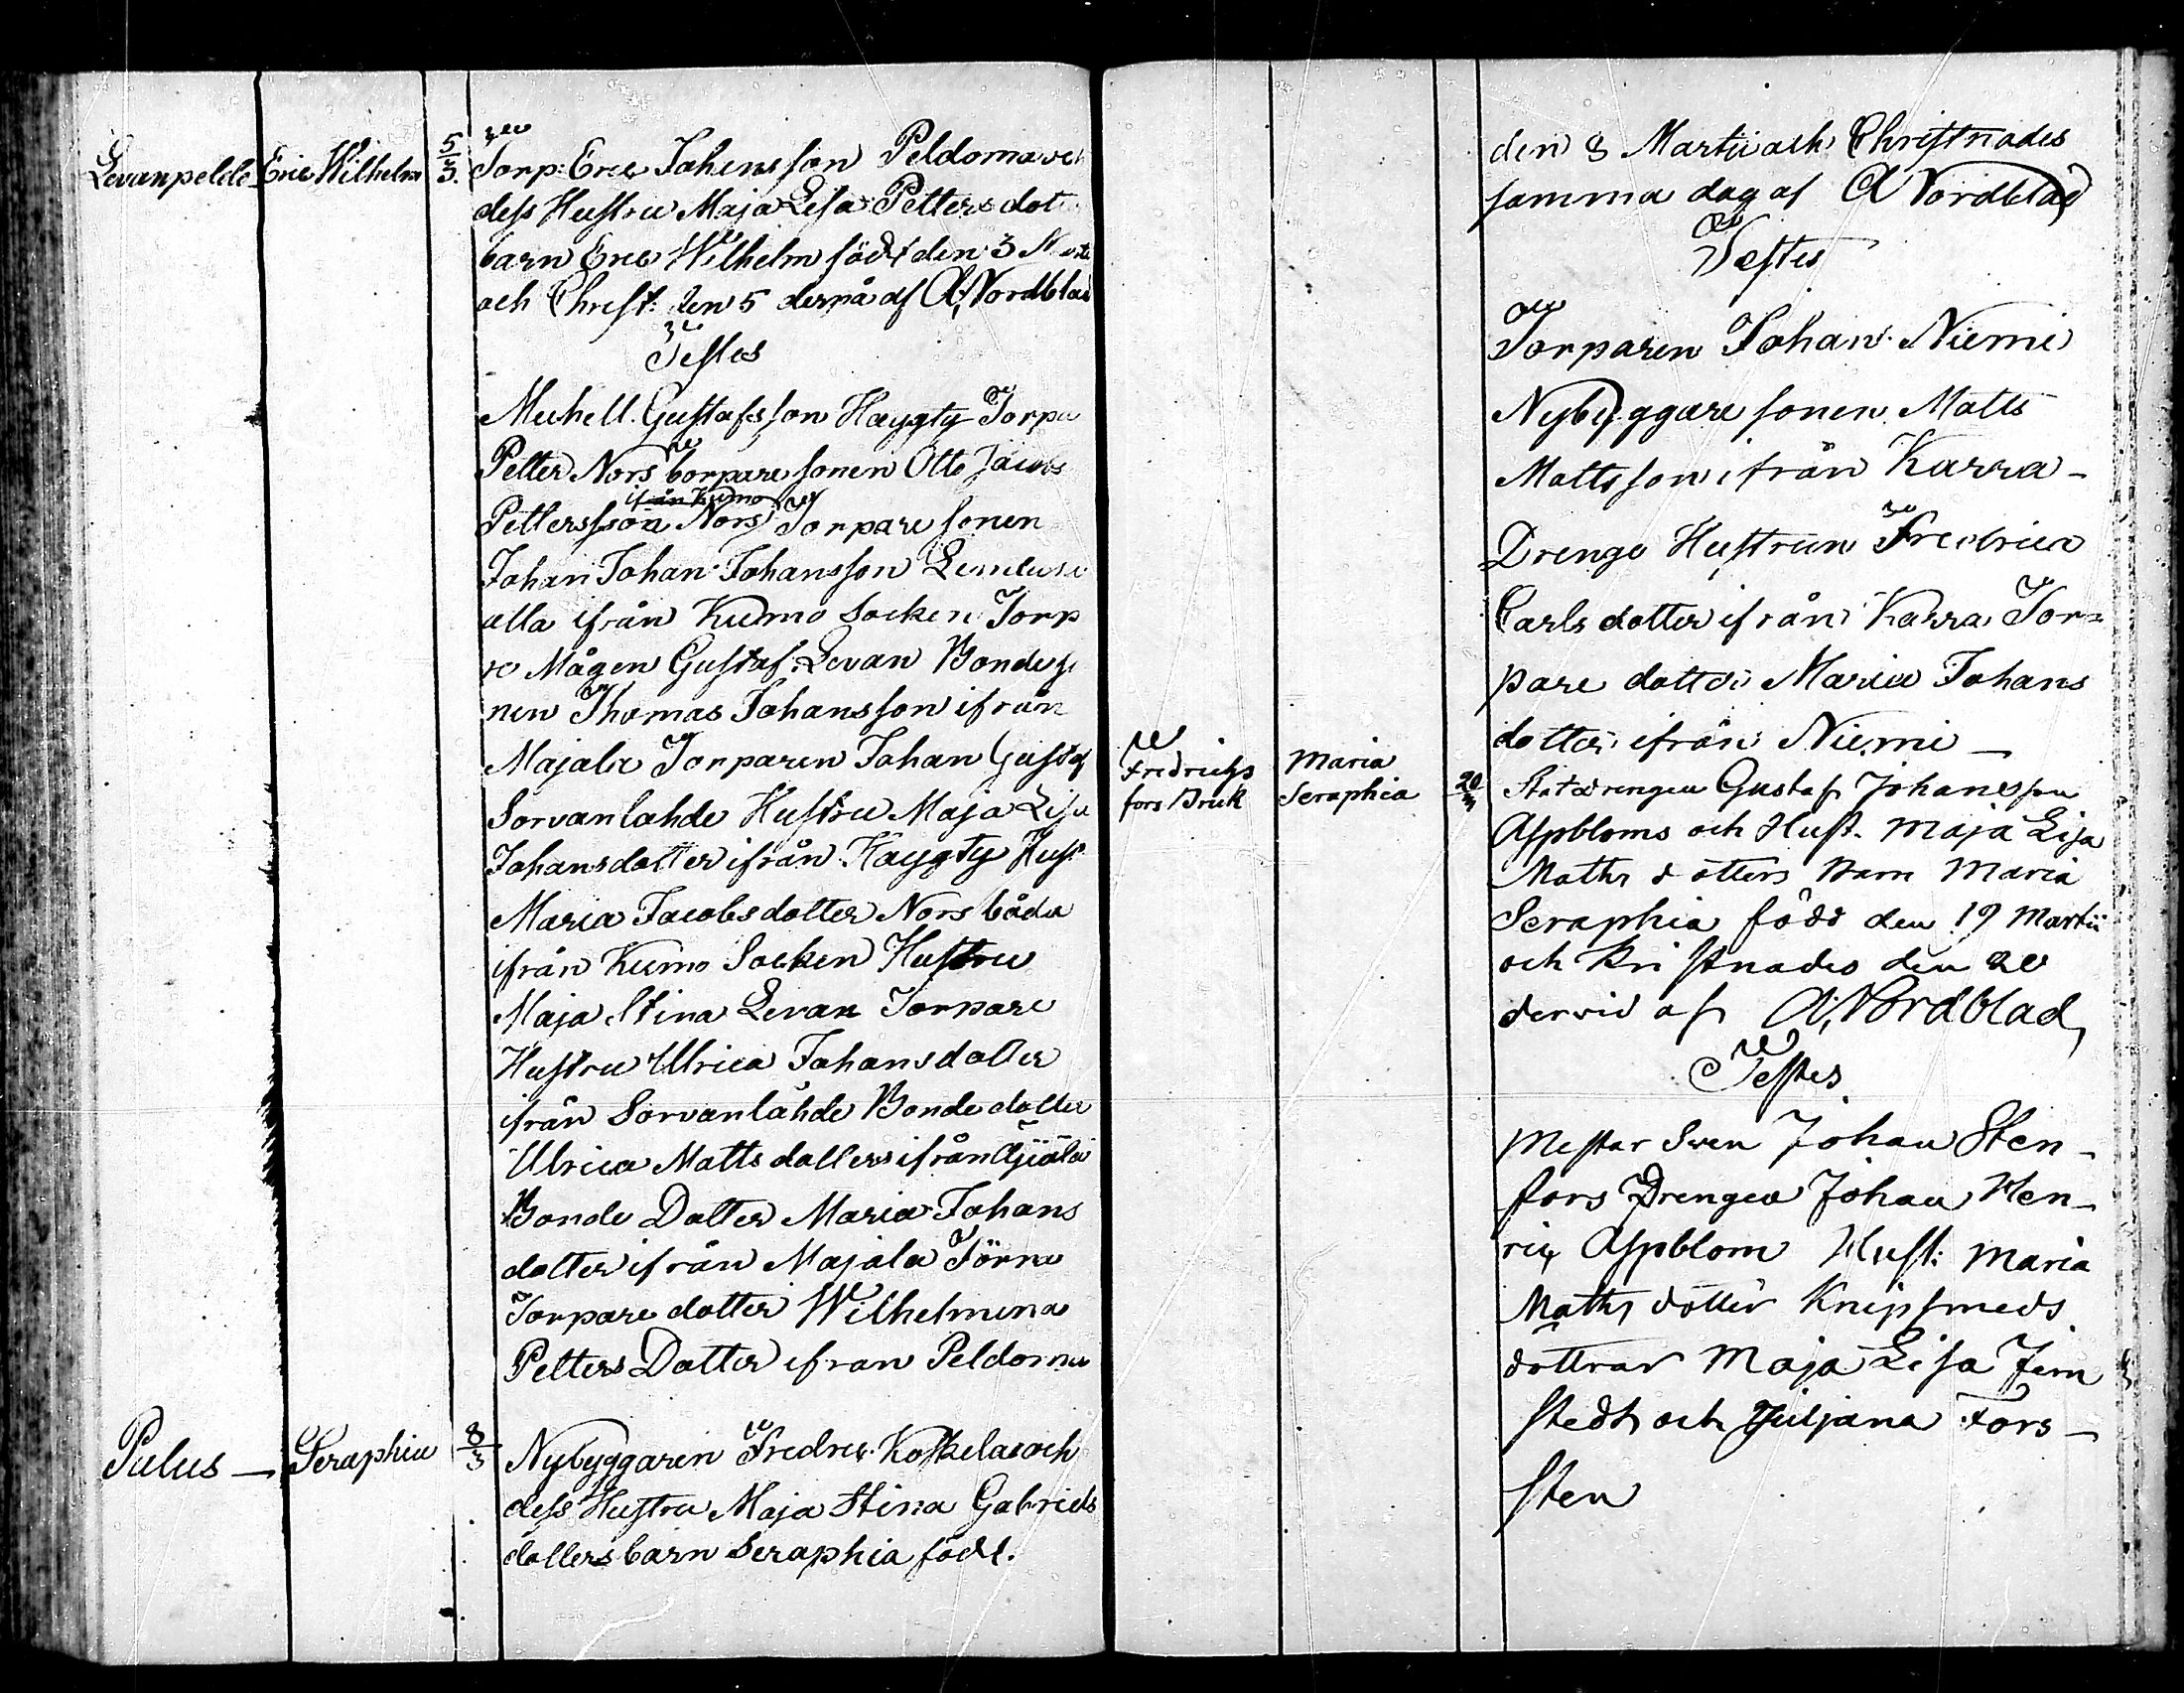 Levanpelde Eric Wilhelm 5/3. Torp: Eric Johansson Peldoma och
dess Hustru Maja Lisa Petters dot
barn Eric Wilhelm född den 3 Marti
och Christ: den 5 derpå af A, Nordblad
Testes
Michell. Gustafsson Haygty Torpa
Petter Nors torpare sonen Otto Jacobs
ifrån Kumo
Pettersson Nors Torpare sonen
Johan Johan Johansson
alla ifrån Kumo Socken Torp
re Mågen Gustaf Levan Bonde so
nen Thomas Johansson ifrån
Majala Torparen Johan Gustaf
Sorvanlahde Hustru Maja Lisa
Johansdotter ifrån Haygty Hust
Maria Jacobsdotter Nors båda
ifrån Kumo Socken Hustru
Maja Stina Levan Torpare
Hustru Ulrica Johansdotter
ifrån Sorvanlahde Bonde dotter
Ulrica Matts dotters ifrån
Bonde Dotter Maria Johans
dotter ifrån Majala
Torpare dotter Wilhelmina
Petters Dotter ifran Peldoma
Pulus — Seraphia 8/3 Nybyggaren Fredric Koskela och
dess Hustru Maja Stina Gabriels
dotters barn Seraphia född.
den 8 Martii och Christnades
samma dag af A Nordblad
Testes
Torparen Johan Niemi
Nybyggare sonen Matts
Mattsson ifrån Karra -
Drenge Hustrun Fredrica
Carls dotter ifrån Karra Tor=
pare dotter Maria Johans
dotter ifrån Niemi —
Fredrichs
fors Bruk
Maria
Seraphia
20/3
Statdrengen Gustaf Johansson
Aspbloms och Hust. Maja Lisa
Maths dotters Barn Maria
Seraphia född den 19 Martii
och Kristnades den 20
dervid af A, Nordblad,
Testes
Mestar Sven Johan Sten -
fors Drengen Johan Hen -
ric Aspblom Hust: Maria
Maths dotter Knipsmeds
dottrar Maja Lisa Jern
stedt och Juljana Fors -
sten